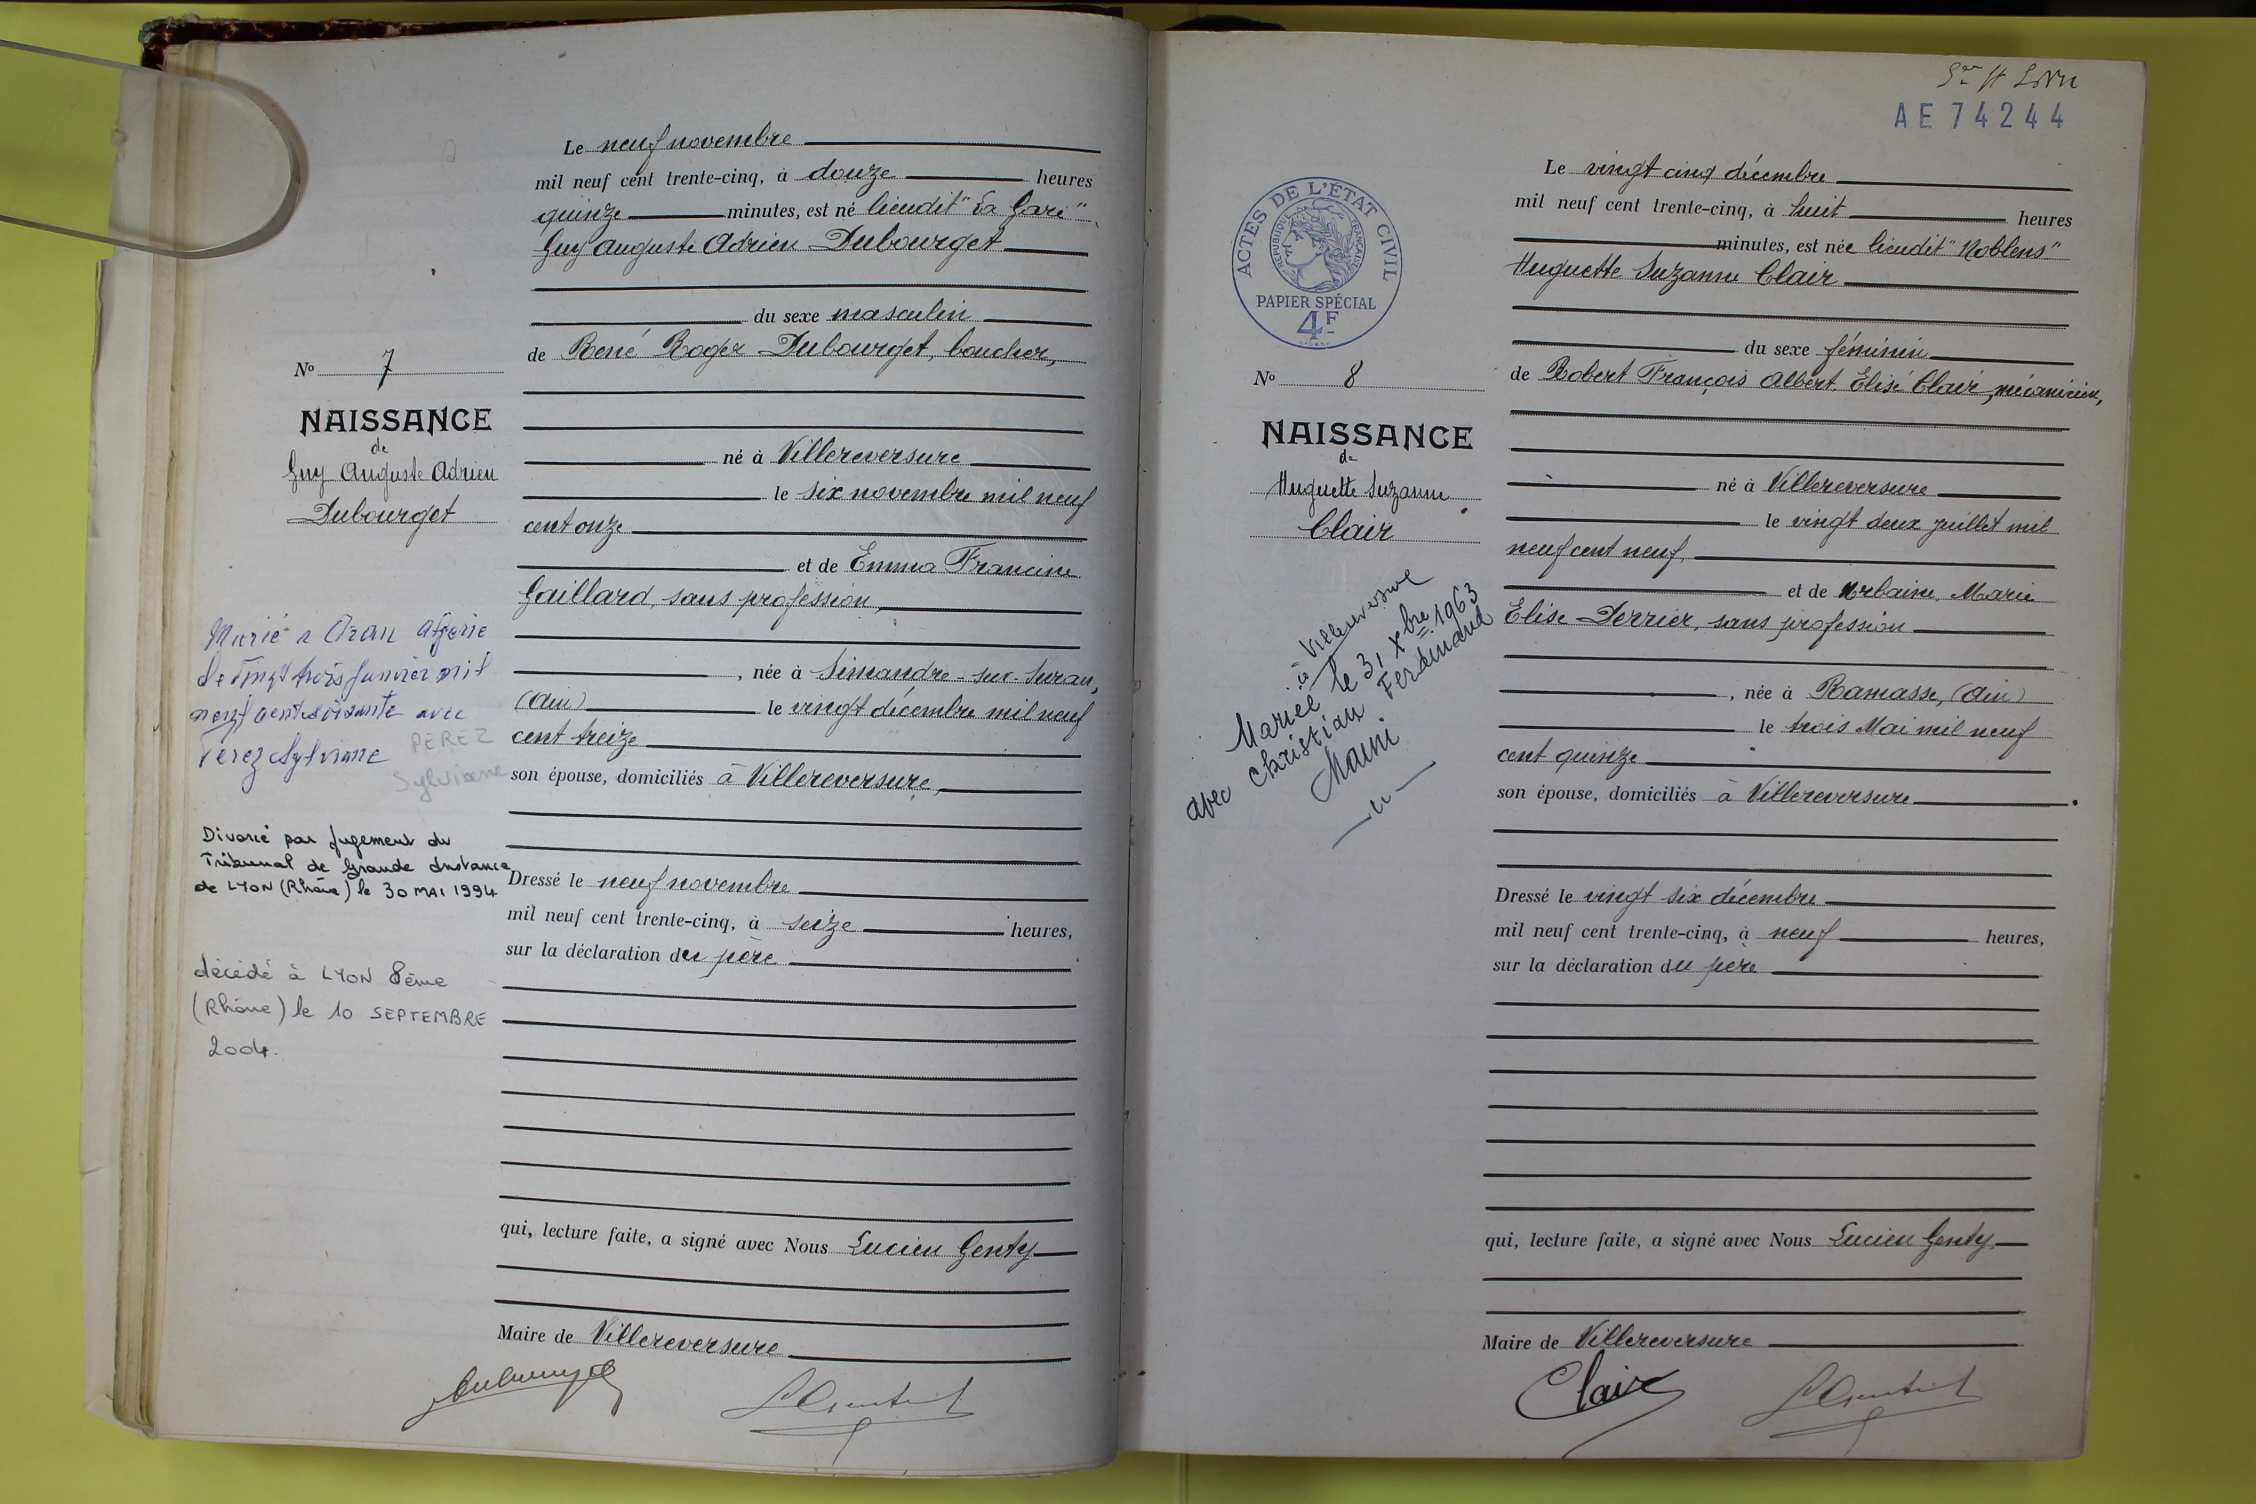 Le neuf novembre
mil neuf cent trente-cinq, à douze heures
quinze minutes, est né lieudit "La Gare"
Guy Auguste Adrien Dubourget
du sexe masculin
de René Roger Dubourget, boucher,
né à Villereversure
le six novembre mil neuf
cent onze
et de Emma Francine
Gaillard, sans profession,
, née à Simandre-sur-Suran,
(Ain) le vingt décembre mil neuf
cent treize
son épouse, domiciliés à Villereversure,
Dressé le neuf novembre
mil neuf cent trente-cinq, à seize heures,
sur la déclaration du père
qui, lecture faite, a signé avec Nous Lucien Genty
Maire de Villereversure
No 7
NAISSANCE
de
Guy Auguste Adrien
Dubourget
Marié à Oran Algérie
le vingt trois janvier mil
neuf cent soixante avec
Perez Sylviane
PEREZ
Sylviane
Divorcé par jugement du
Tribunal de Grande Instance
de LYON (Rhône) le 30 MAI 1994
décédé à LYON 8ème
(Rhône) le 10 SEPTEMBRE
2004.
AE 74244
ACTES DE L'ÉTAT CIVIL
RÉPUBLIQUE FRANÇAISE
PAPIER SPÉCIAL
4F
Le vingt cinq décembre
mil neuf cent trente-cinq, à huit heures
minutes, est née lieudit "Noblens"
Huguette Suzanne Clair
du sexe féminin
de Robert François Albert Elisé Clair, mécanicien,
né à Villereversure
le vingt deux juillet mil
neuf cent neuf,
et de Urbaine Marie
Elise Perrier, sans profession
, née à Ramasse, (Ain)
le trois Mai mil neuf
cent quinze
son épouse, domiciliés à Villereversure
Dressé le vingt six décembre
mil neuf cent trente-cinq, à neuf heures,
sur la déclaration du père
qui, lecture faite, a signé avec Nous Lucien Genty
Maire de Villereversure
Clair
No 8
NAISSANCE
de
Huguette Suzanne
Clair
à Villereversure
Mariée le 31 Xbre 1963
avec Christian Ferdinand
Maini